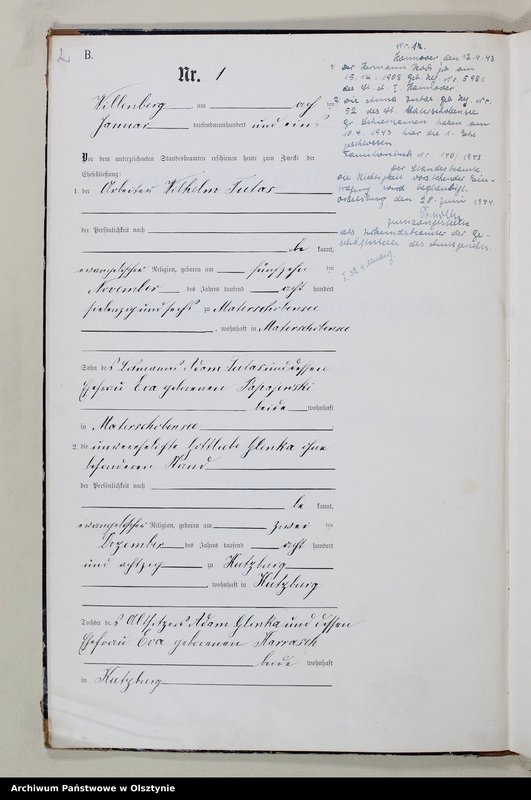 2
B.
Nr. 1
Willenberg, am acht ten
Januar tausendneunhundert und eins
Vor dem unterzeichneten Standesbeamten erschienen heute zum Zwecke der
Eheschließung:
1. der Arbeiter Wilhelm Tutas
der Persönlichkeit nach
be kannt,
evangelischer Religion, geboren am fünfzehn ten
November des Jahres tausend acht hundert
siebenzig und sechs zu Materschobensee
, wohnhaft in Materschobensee
Sohn des Losmanns Adam Tutas und dessen
Ehefrau Eva geborenen
beide wohnhaft
in Materschobensee
2. die unverehelichte Gottliebe Glinka ohne
besonderen Stand
der Persönlichkeit nach
be kannt,
evangelischer Religion, geboren am zwei ten
Dezember des Jahres tausend acht hundert
und achtzig zu Kutzburg
, wohnhaft in Kutzburg
Tochter des Altsitzers Adam Glinka und dessen
Ehefrau Eva geborenen Karrasch
beide wohnhaft
in Kutzburg
Nr. 1
Hannover den 12.4.43
der Hermann geb. am
1908 geb. Reg. Nr.
des St. A. I. Hannover
2. die Anna Tutas geb. Reg. Nr.
52 des St. Materschobensee
haben am
10.4.1943 hier die 1. Ehe
geschlossen
Familienbuch Nr. 140/1943.
Der Standesbeamte.
Die Richtigkeit vorstehender Ein-
tragung wird beglaubigt.
Ortelsburg, den 28. Juni 1944.
Justizangestellte
als Urkundsbeamter der Ge-
schäftsstelle des Amtsgerichts.
Archiwum Państwowe w Olsztynie